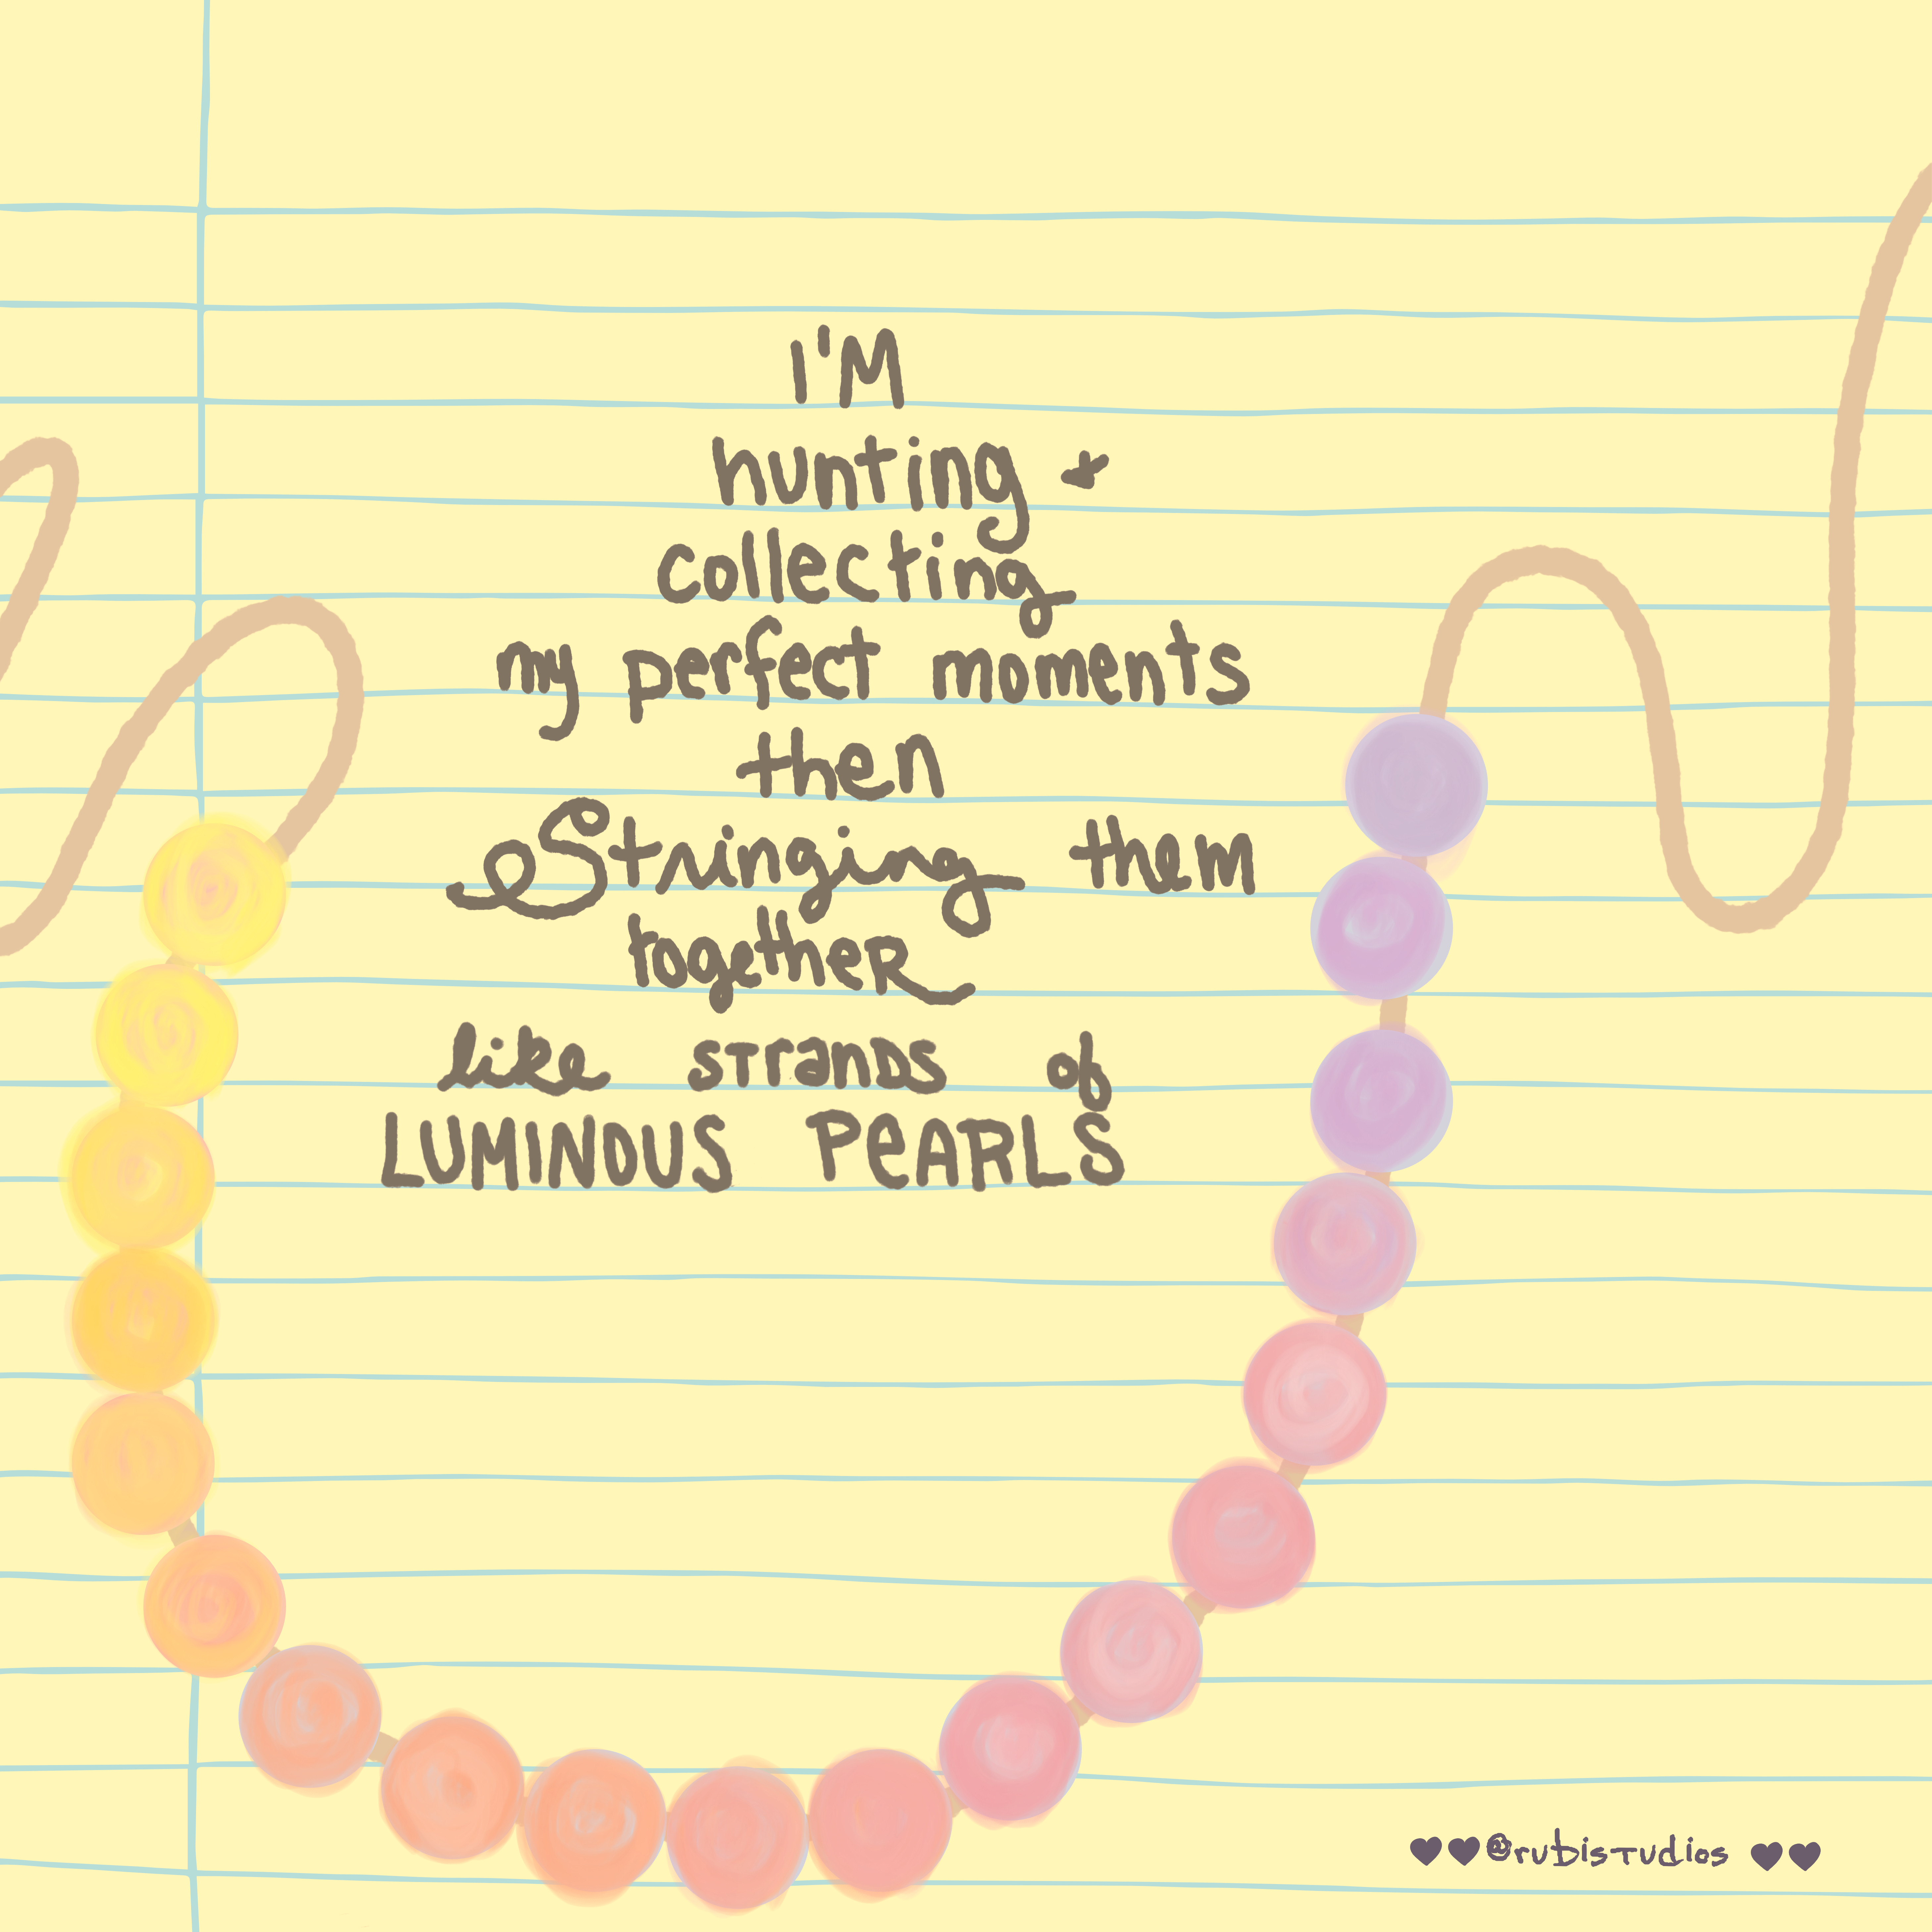 I'M
hunting +
collecting
my perfect moments
then
Stringing them
together
like strands of
LUMINOUS PEARLS
♥♥@rubistudios ♥♥